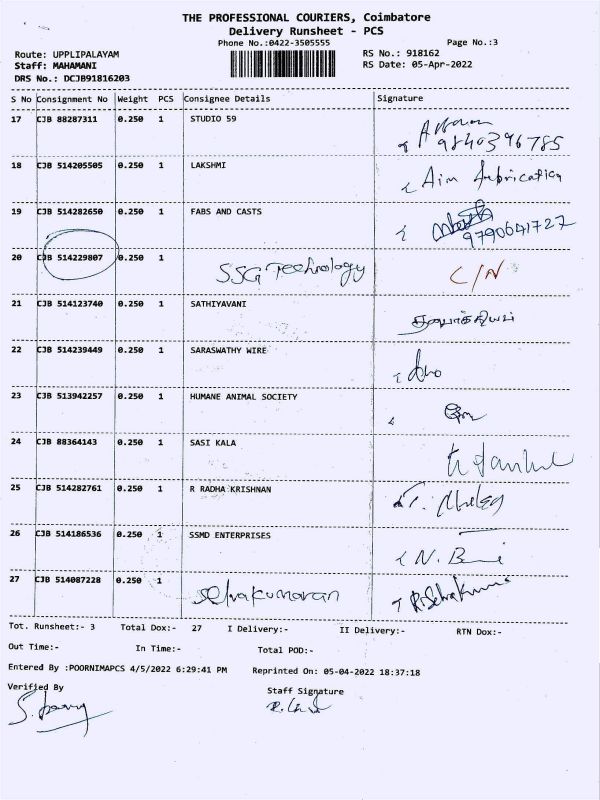 THE PROFESSIONAL COURIERS, Coimbatore
Delivery Runsheet - PCS
Phone No.:0422-3505555
Page No.:3
Route: UPPLIPALAYAM
RS No.: 918162
Staff: MAHAMANI
RS Date: 05-Apr-2022
DRS No.: DCJB91816203
S No Consignment No Weight PCS Consignee Details Signature
17 CJB 88287311 0.250 1 STUDIO 59
9840396785
18 CJB 514205505 0.250 1 LAKSHMI Aim fabrication
19 CJB 514282650 0.250 1 FABS AND CASTS
9790641727
20 CJB 514229807 0.250 1 SSG Technology C/N
21 CJB 514123740 0.250 1 SATHIYAVANI
22 CJB 514239449 0.250 1 SARASWATHY WIRE
23 CJB 513942257 0.250 1 HUMANE ANIMAL SOCIETY
24 CJB 88364143 0.250 1 SASI KALA
25 CJB 514282761 0.250 1 R RADHA KRISHNAN
26 CJB 514186536 0.250 1 SSMD ENTERPRISES
27 CJB 514087228 0.250 1 Selvakumaran R.Selvakumar
Tot. Runsheet:- 3 Total Dox:- 27 I Delivery:- II Delivery:- RTN Dox:-
Out Time:- In Time:- Total POD:-
Entered By :POORNIMAPCS 4/5/2022 6:29:41 PM Reprinted On: 05-04-2022 18:37:18
Verified By Staff Signature